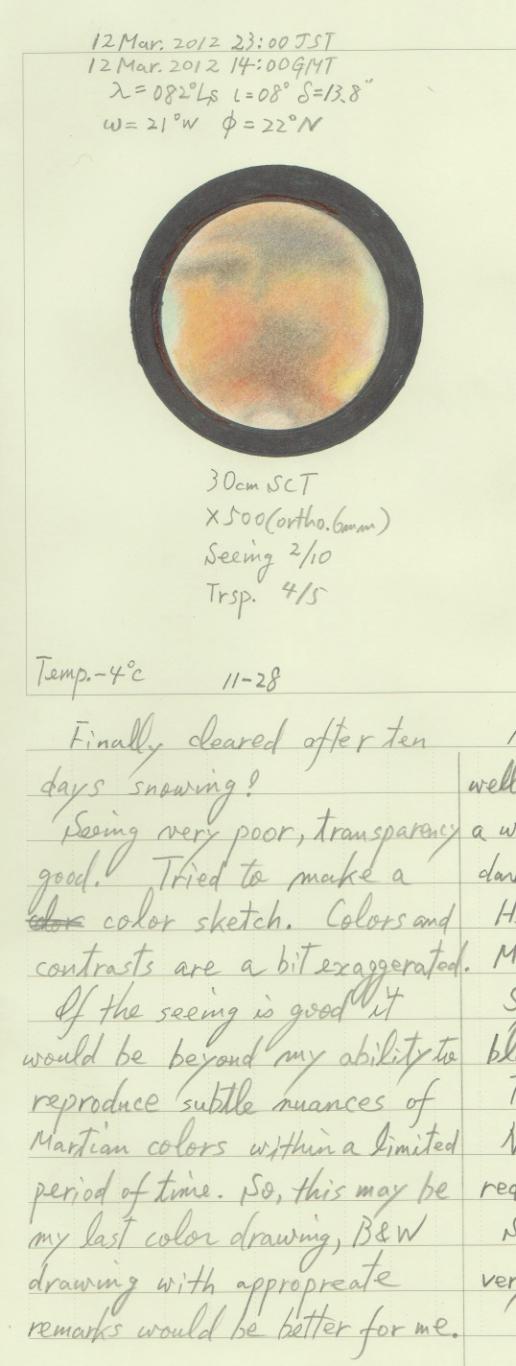 12 Mar. 2012 23:00 JST
12 Mar. 2012 14:00 GMT
λ=082°Ls ι=08° δ=13.8"
ω=21°W φ=22°N
30cm SCT
X500(ortho.6mm)
Seeing 2/10
Trsp. 4/5
Temp.-4°C 11-28
Finally cleared after ten
days snowing!
Seeing very poor, transparency
good. Tried to make a
color color sketch. Colors and
contrasts are a bit exaggerated.
If the seeing is good it
would be beyond my ability to
reproduce subtle nuances of
Martian colors within a limited
period of time. So, this may be
my last color drawing, B&W
drawing with appropreate
remarks would be better for me.
well
a w
H
M
S
bl
T
req
ver